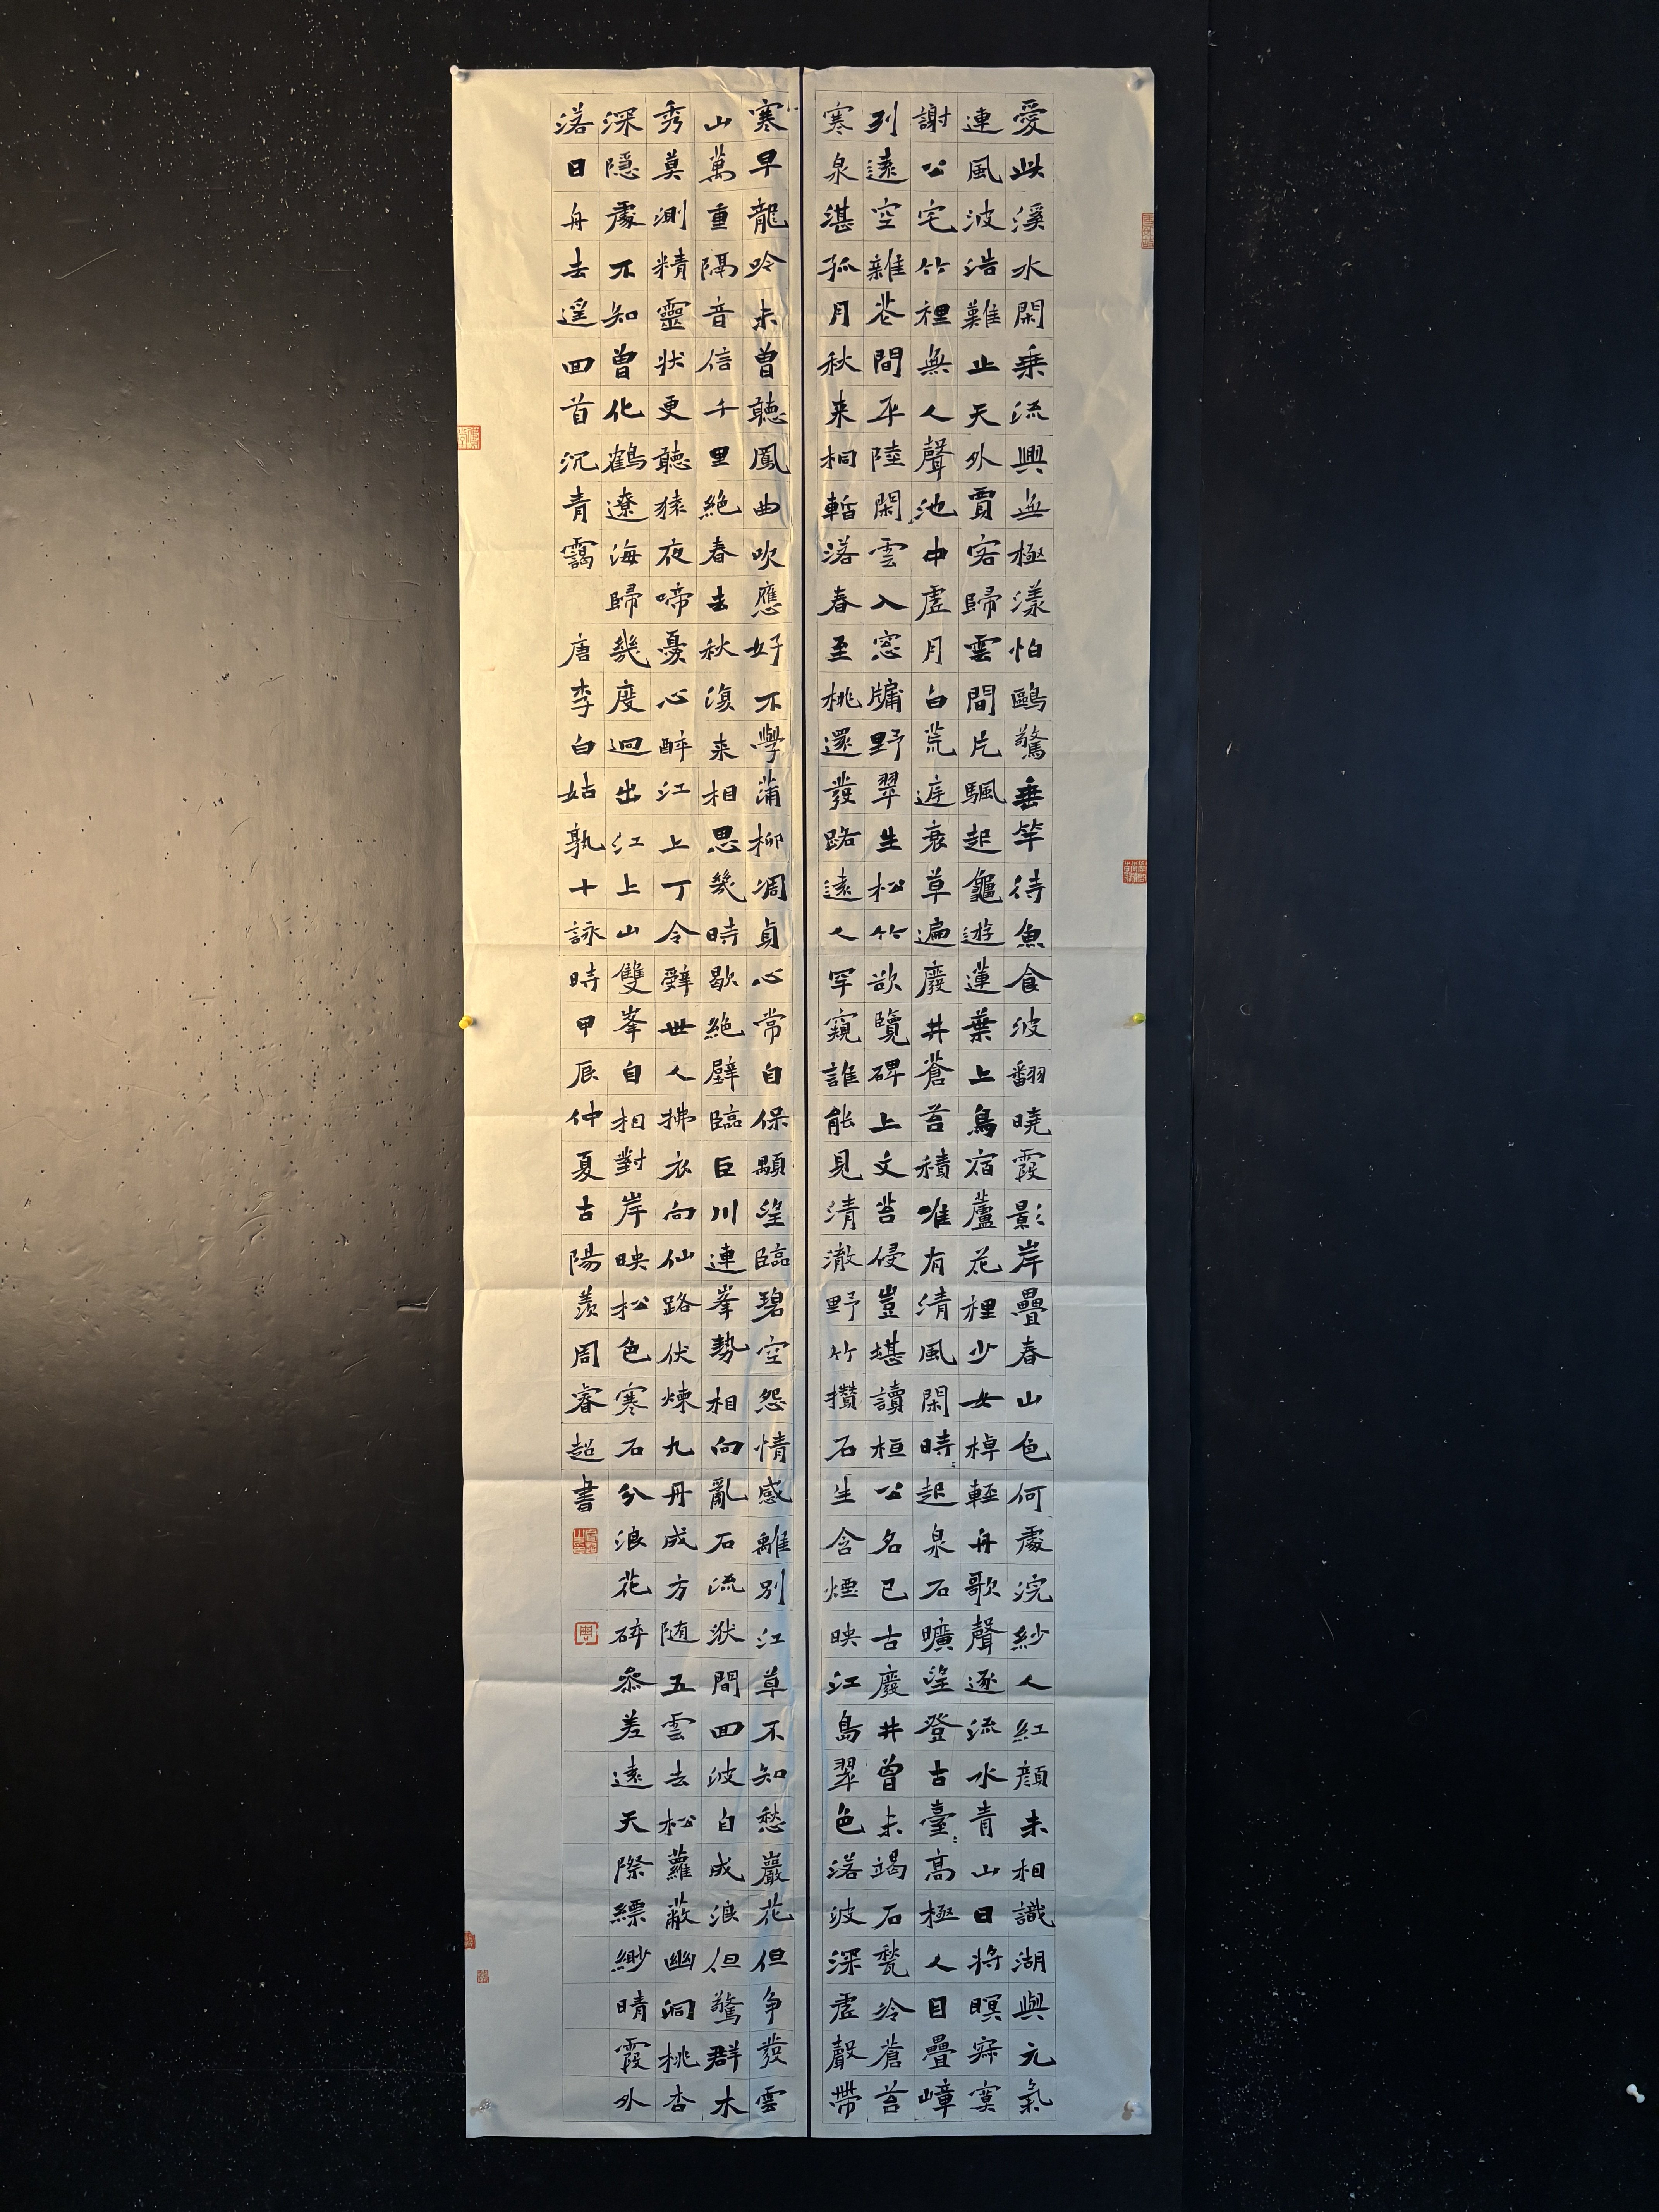 愛此溪水閑乗流興無極漾怕鷗驚垂竿待魚食波翻曉霞影岸疊春山色何處浣紗人紅顔未相識湖與元氣
連風波浩難止天外賈客歸雲間片颿起龜遊蓮葉上鳥宿蘆花裡少女棹輕舟歌聲逐流水青山日將暝寂寞
謝公宅竹裡無人聲池中虛月白荒庭衰草遍廢井蒼苔積唯有清風閑時起泉石曠望登古臺高極人目疊嶂
列遠空雜花間平陸閑雲入窓牖野翠生松竹欲覽碑上文苔侵豈堪讀桓公名已古廢井曾未竭石甃冷蒼苔
寒泉湛孤月秋来桐暫落春至桃還發路遠人罕窺誰能見清澈野竹攢石生含煙映江島翠色落波深虛聲帶
寒早龍吟未曾聽鳳曲吹應好不學蒲柳凋貞心常自保顒望臨碧空怨情感離別江草不知愁巖花但争發雲
山萬重隔音信千里絶春去秋復来相思幾時歇絶壁臨巨川連峯勢相向亂石流洑間回波自成浪但驚群木
秀莫測精靈状更聽猿夜啼憂心醉江上丁令辭世人拂衣向仙路伏煉九丹成方随五雲去松蘿蔽幽洞桃杏
深隱處不知曾化鶴遼海歸幾度迥出江上山雙峯自相對岸映松色寒石分浪花碎參差遠天際縹緲晴霞外
落日舟去遥回首沉青靄 唐李白姑孰十詠時甲辰仲夏古陽羨周睿超書